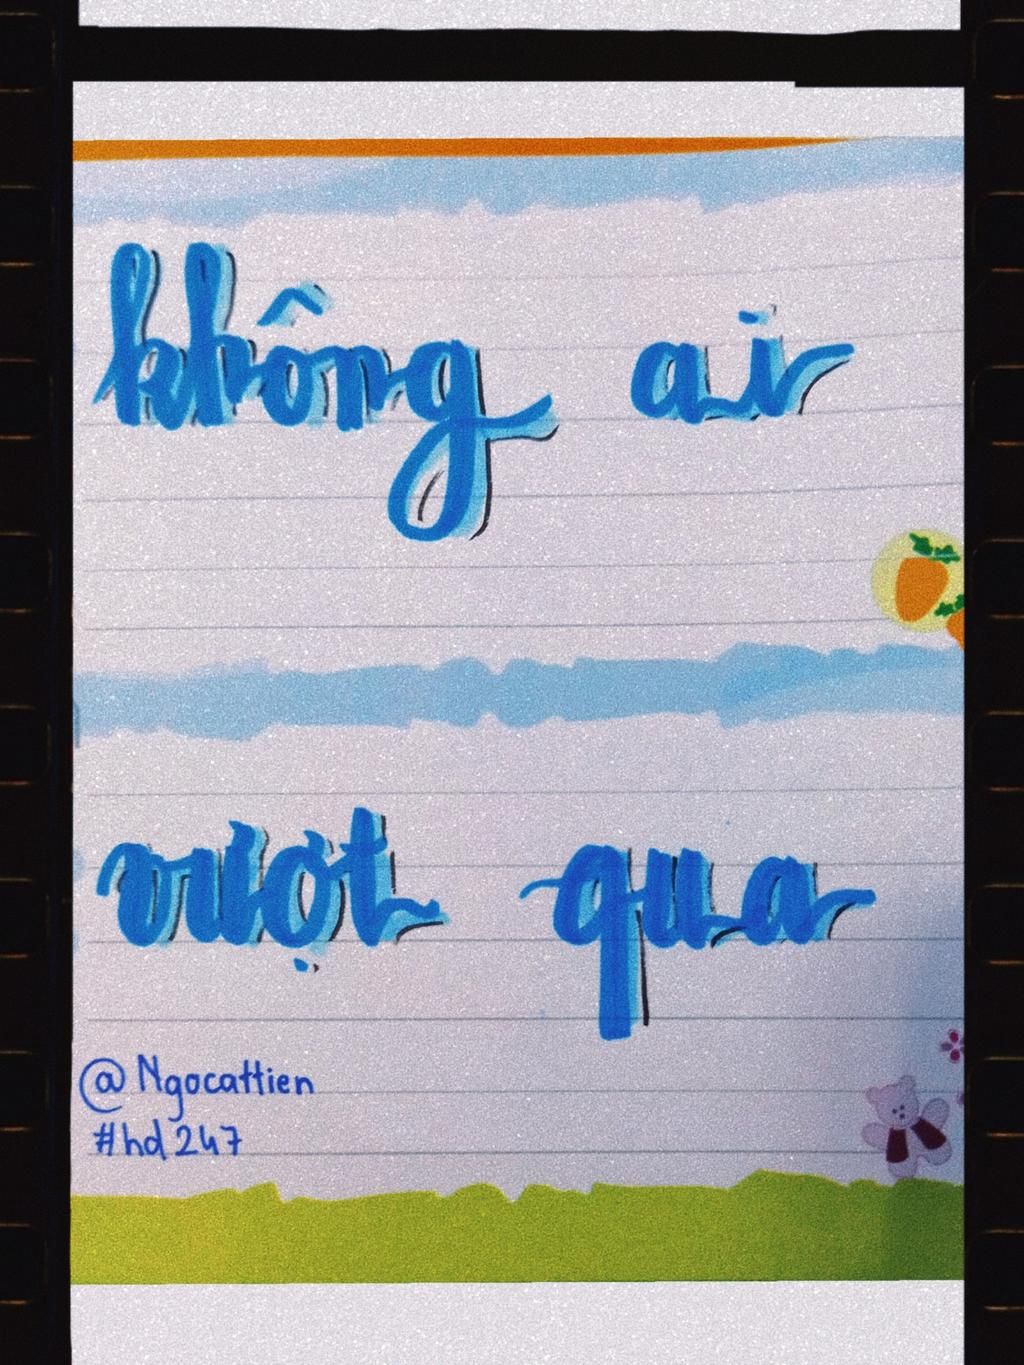 không ai
vượt qua
@Ngocattien
#hd247